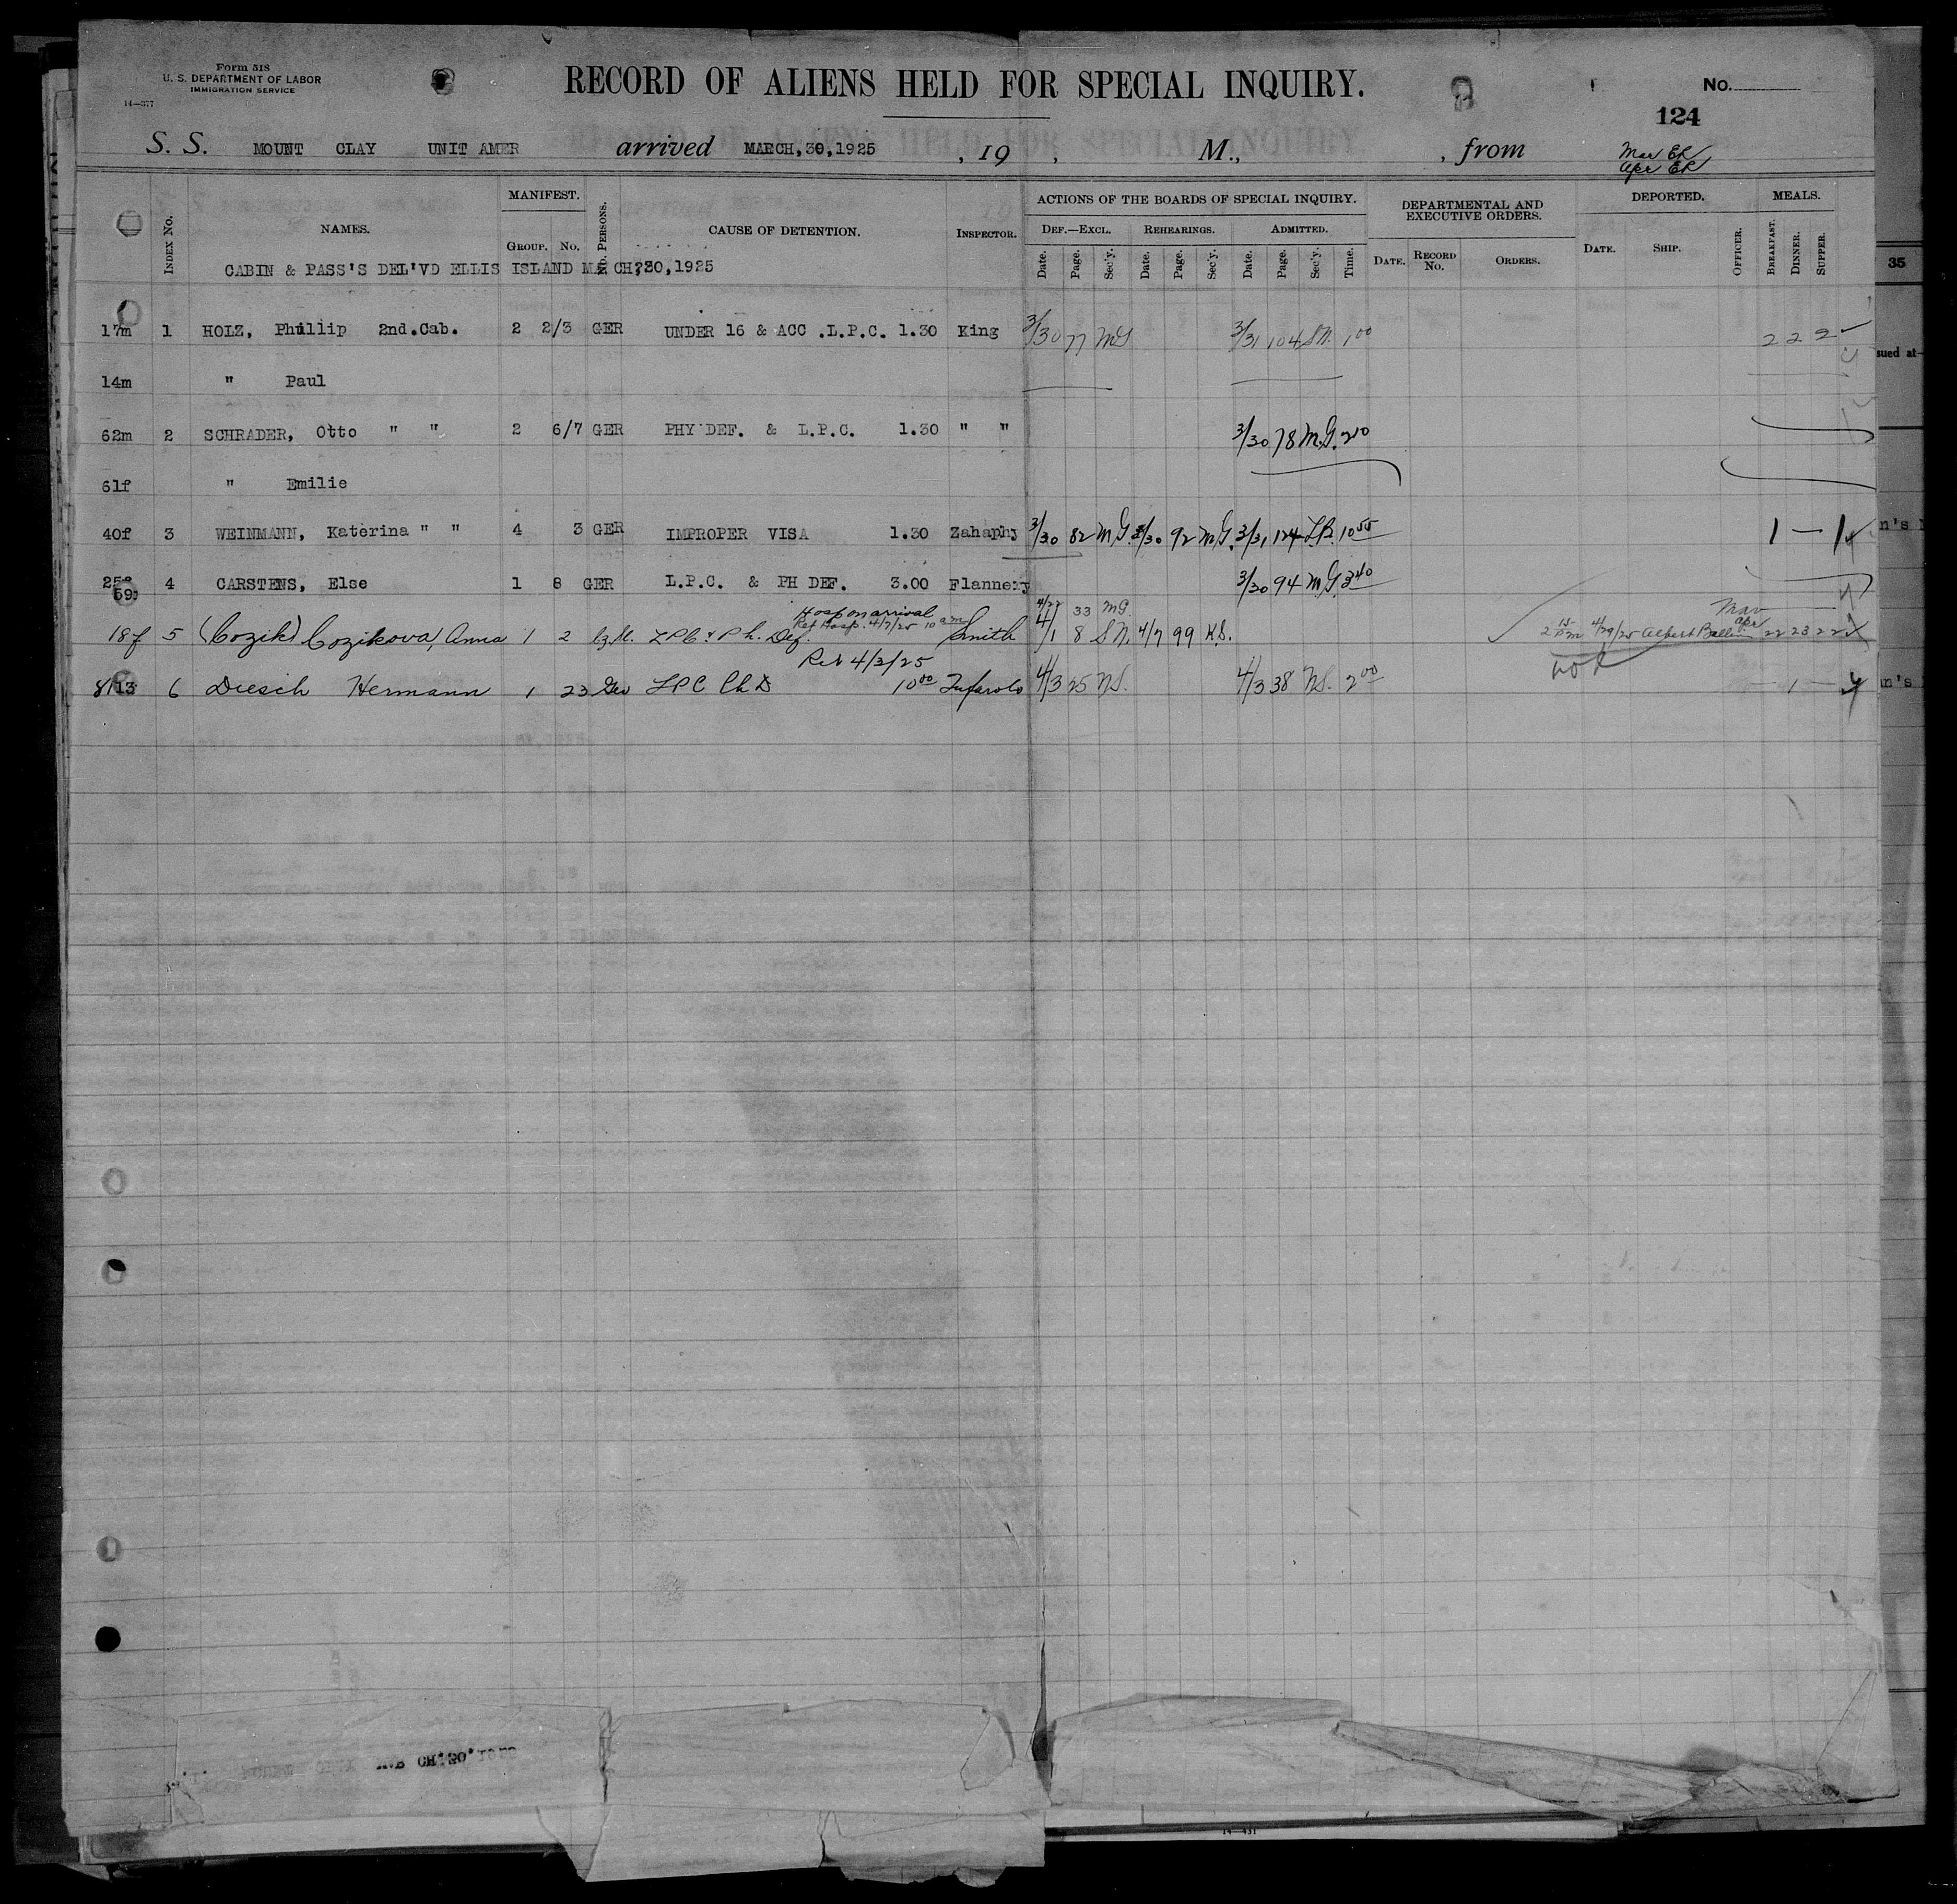 Form 518
U. S. DEPARTMENT OF LABOR
IMMIGRATION SERVICE
14—377
RECORD OF ALIENS HELD FOR SPECIAL INQUIRY.
No.
124
S. S. MOUNT CLAY UNIT AMER arrived MARCH,30,1925 , 19 , M., , from
Mar ER
Apr ER
INDEX No. NAMES. MANIFEST. GROUP. No. No. PERSONS. CAUSE OF DETENTION. INSPECTOR. ACTIONS OF THE BOARDS OF SPECIAL INQUIRY. DEPARTMENTAL AND EXECUTIVE ORDERS. DEPORTED. MEALS.
DEF.—EXCL. REHEARINGS. ADMITTED.
Date. Page. Sec'y. Date. Page. Sec'y. Date. Page. Sec'y. Time. DATE. RECORD No. ORDERS. DATE. SHIP. OFFICER. BREAKFAST. DINNER. SUPPER.
CABIN & PASS'S DEL'VD ELLIS ISLAND MARCH,30,1925
35
17m 1 HOLZ, Phillip 2nd.Cab. 2 2/3 GER UNDER 16 & ACC .L.P.C. 1.30 King 3/30 77 MG 3/31 104 SN. 1 00 2 2 2
sued at—
14m " Paul
62m 2 SCHRADER, Otto " " 2 6/7 GER PHY DEF. & L.P.C. 1.30 " " 3/30 78 M.G. 2 10
61f " Emilie
40f 3 WEINMANN, Katerina " " 4 3 GER IMPROPER VISA 1.30 Zahaphy 3/30 82 M.G. 3/30 92 M.G. 3/31 124 L.B. 10 55 1 — 1
n's
4 CARSTENS, Else 1 8 GER L.P.C. & PH DEF. 3.00 Flannery 3/30 94 M.G. 3 40
Hosp on arrival
Ret Hosp. 4/7/25 10 am 33 MG Mar
18f 5 (Cozik) Cozikova, Anna 1 2 LPC & Ph. Def. Smith 4/1 8 SN. 4/7 99 K.S. 2 15 PM 4/29/25 Albert Ballin Apr 22 23 22
Ret 4/3/25
6 Diesch Hermann 1 23 Ger LPC Ch D 10 00 4/3 25 NS. 4/3 38 NS. 2 00 — 1 —
n's
14—431